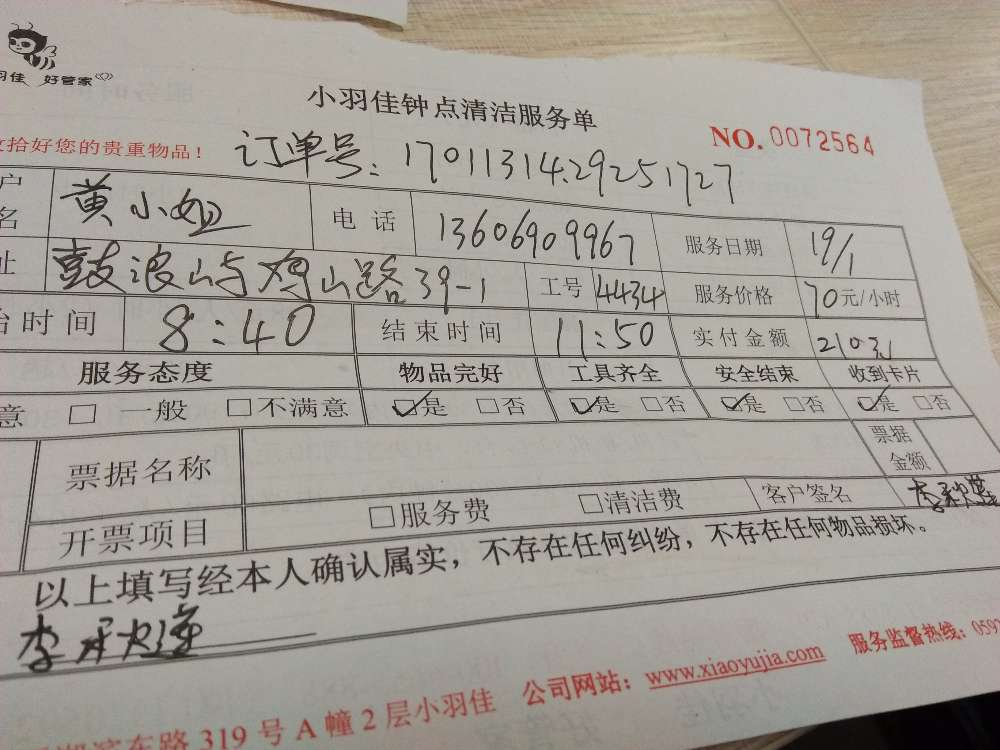 羽佳 好管家
小羽佳钟点清洁服务单
NO. 0072564
拾好您的贵重物品！ 订单号：17011314.29251727
户名 黄小姐 电话 13606909967 服务日期 19/1
址 鼓浪屿鸡山路39-1 工号 4434 服务价格 70元/小时
时间 8:40 结束时间 11:50 实付金额 210元
服务态度 物品完好 工具齐全 安全结束 收到卡片
意 □ 一般 □不满意 ☑是 □否 ☑是 □否 ☑是 □否 ☑是 □否
票据名称 票据金额
开票项目 □服务费 □清洁费 客户签名 李秋莲
以上填写经本人确认属实，不存在任何纠纷，不存在任何物品损坏。
李秋莲
东路319号A幢2层小羽佳 公司网站：www.xiaoyujia.com 服务监督热线：0592